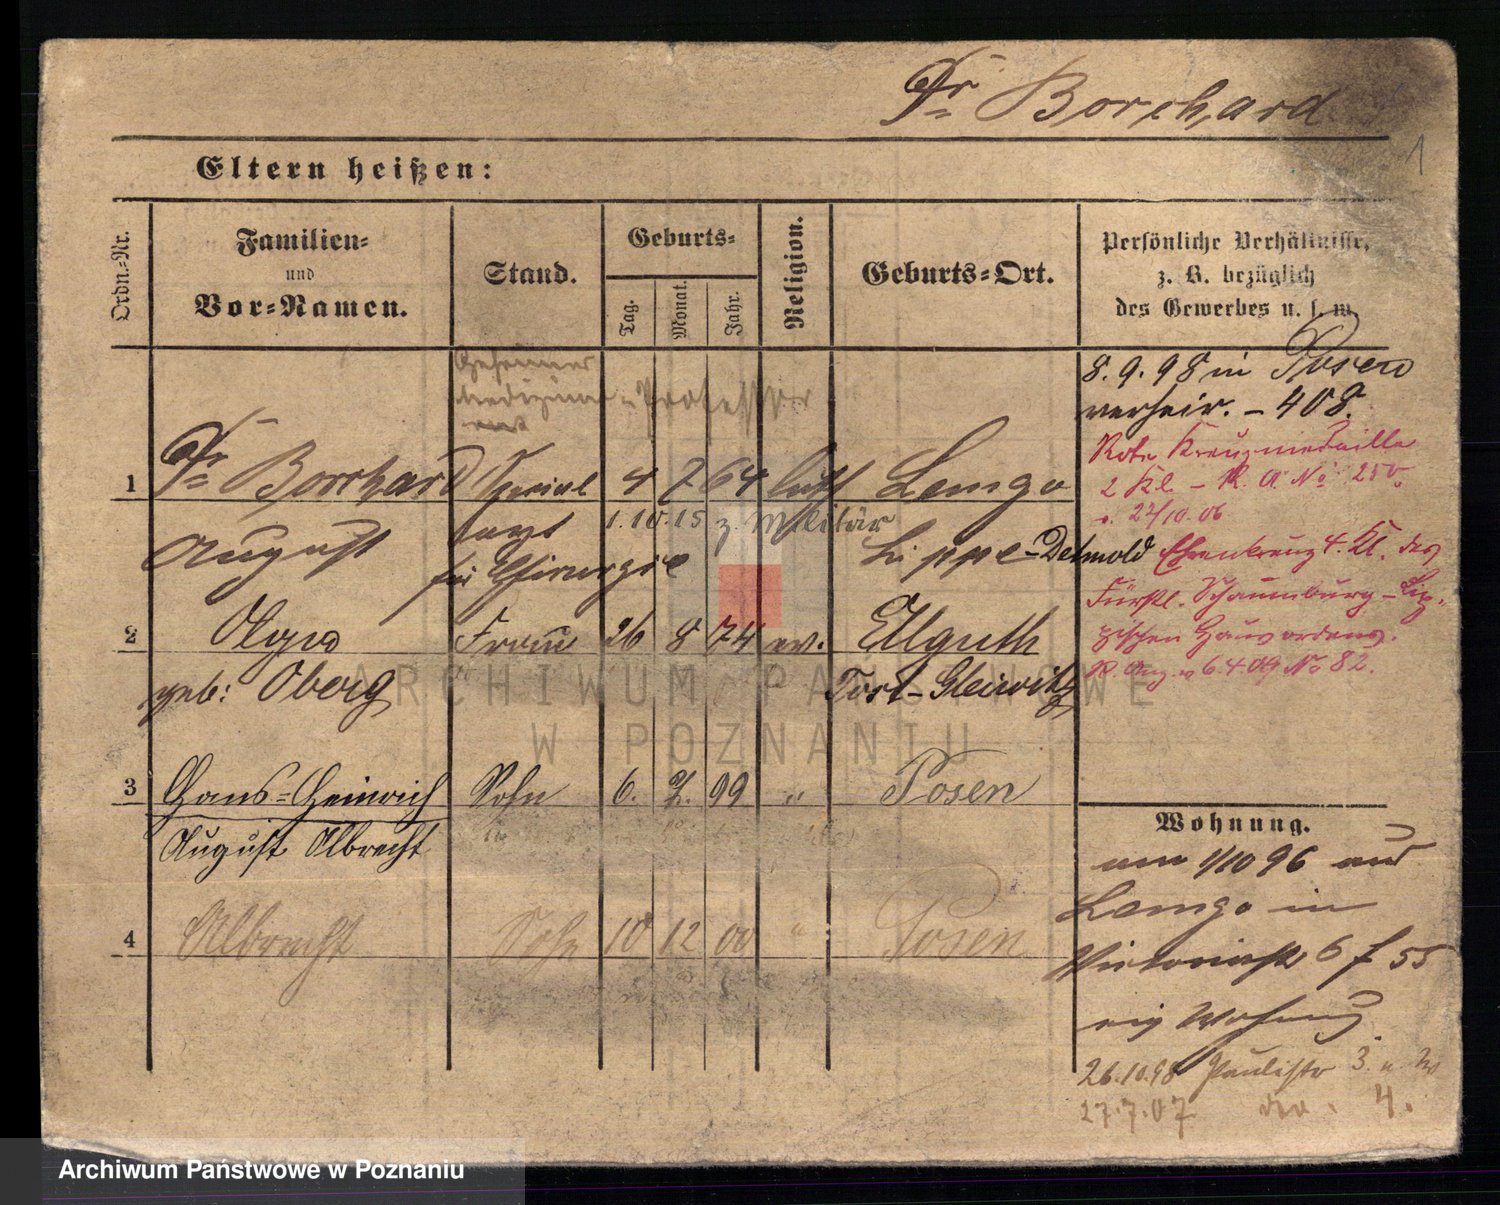 Dr Borchard
1
Eltern heißen:
Ordn.-Nr.
Familien-
und
Vor-Namen.
Stand.
Geburts-
Tag.
Monat.
Jahr.
Religion.
Geburts-Ort.
Persönliche Verhältnisse,
z. B. bezüglich
des Gewerbes u. s. w.
Geheimer
Medizinal- u. Professor
rat
8.9.98 in Posen
verheir. - 408.
1 Dr Borchard Spezial 4 7 64 luth Lemgo
August arzt 1.10.15 z. Militär
für Chirurgie Lippe-Detmold
Rote Kreuzmedaille
2 Kl. - R. A No 250.
v. 22/10.06
Ehrenkreuz 4. Kl. des
Fürstl. Schaumburg-Lip-
pischen Hausordens.
R. Anz. v 6.4 09 No 82.
2 Olga Frau 26 8 74 ev. Ellguth
geb: Oberg Tost-Gleiwitz
ARCHIWUM PAŃSTWOWE
W POZNANIU
3 Hans-Heinrich Sohn 6. 7. 99 " Posen
August Albrecht
4 Albrecht Sohn 10 12 00 " Posen
Wohnung.
am 1/10 96 aus
Lemgo in
Victoriastr 6 f 55
eig Wohnung
26.10.98 Paulistr 3. u.
27.7.07 do. 4.
Archiwum Państwowe w Poznaniu